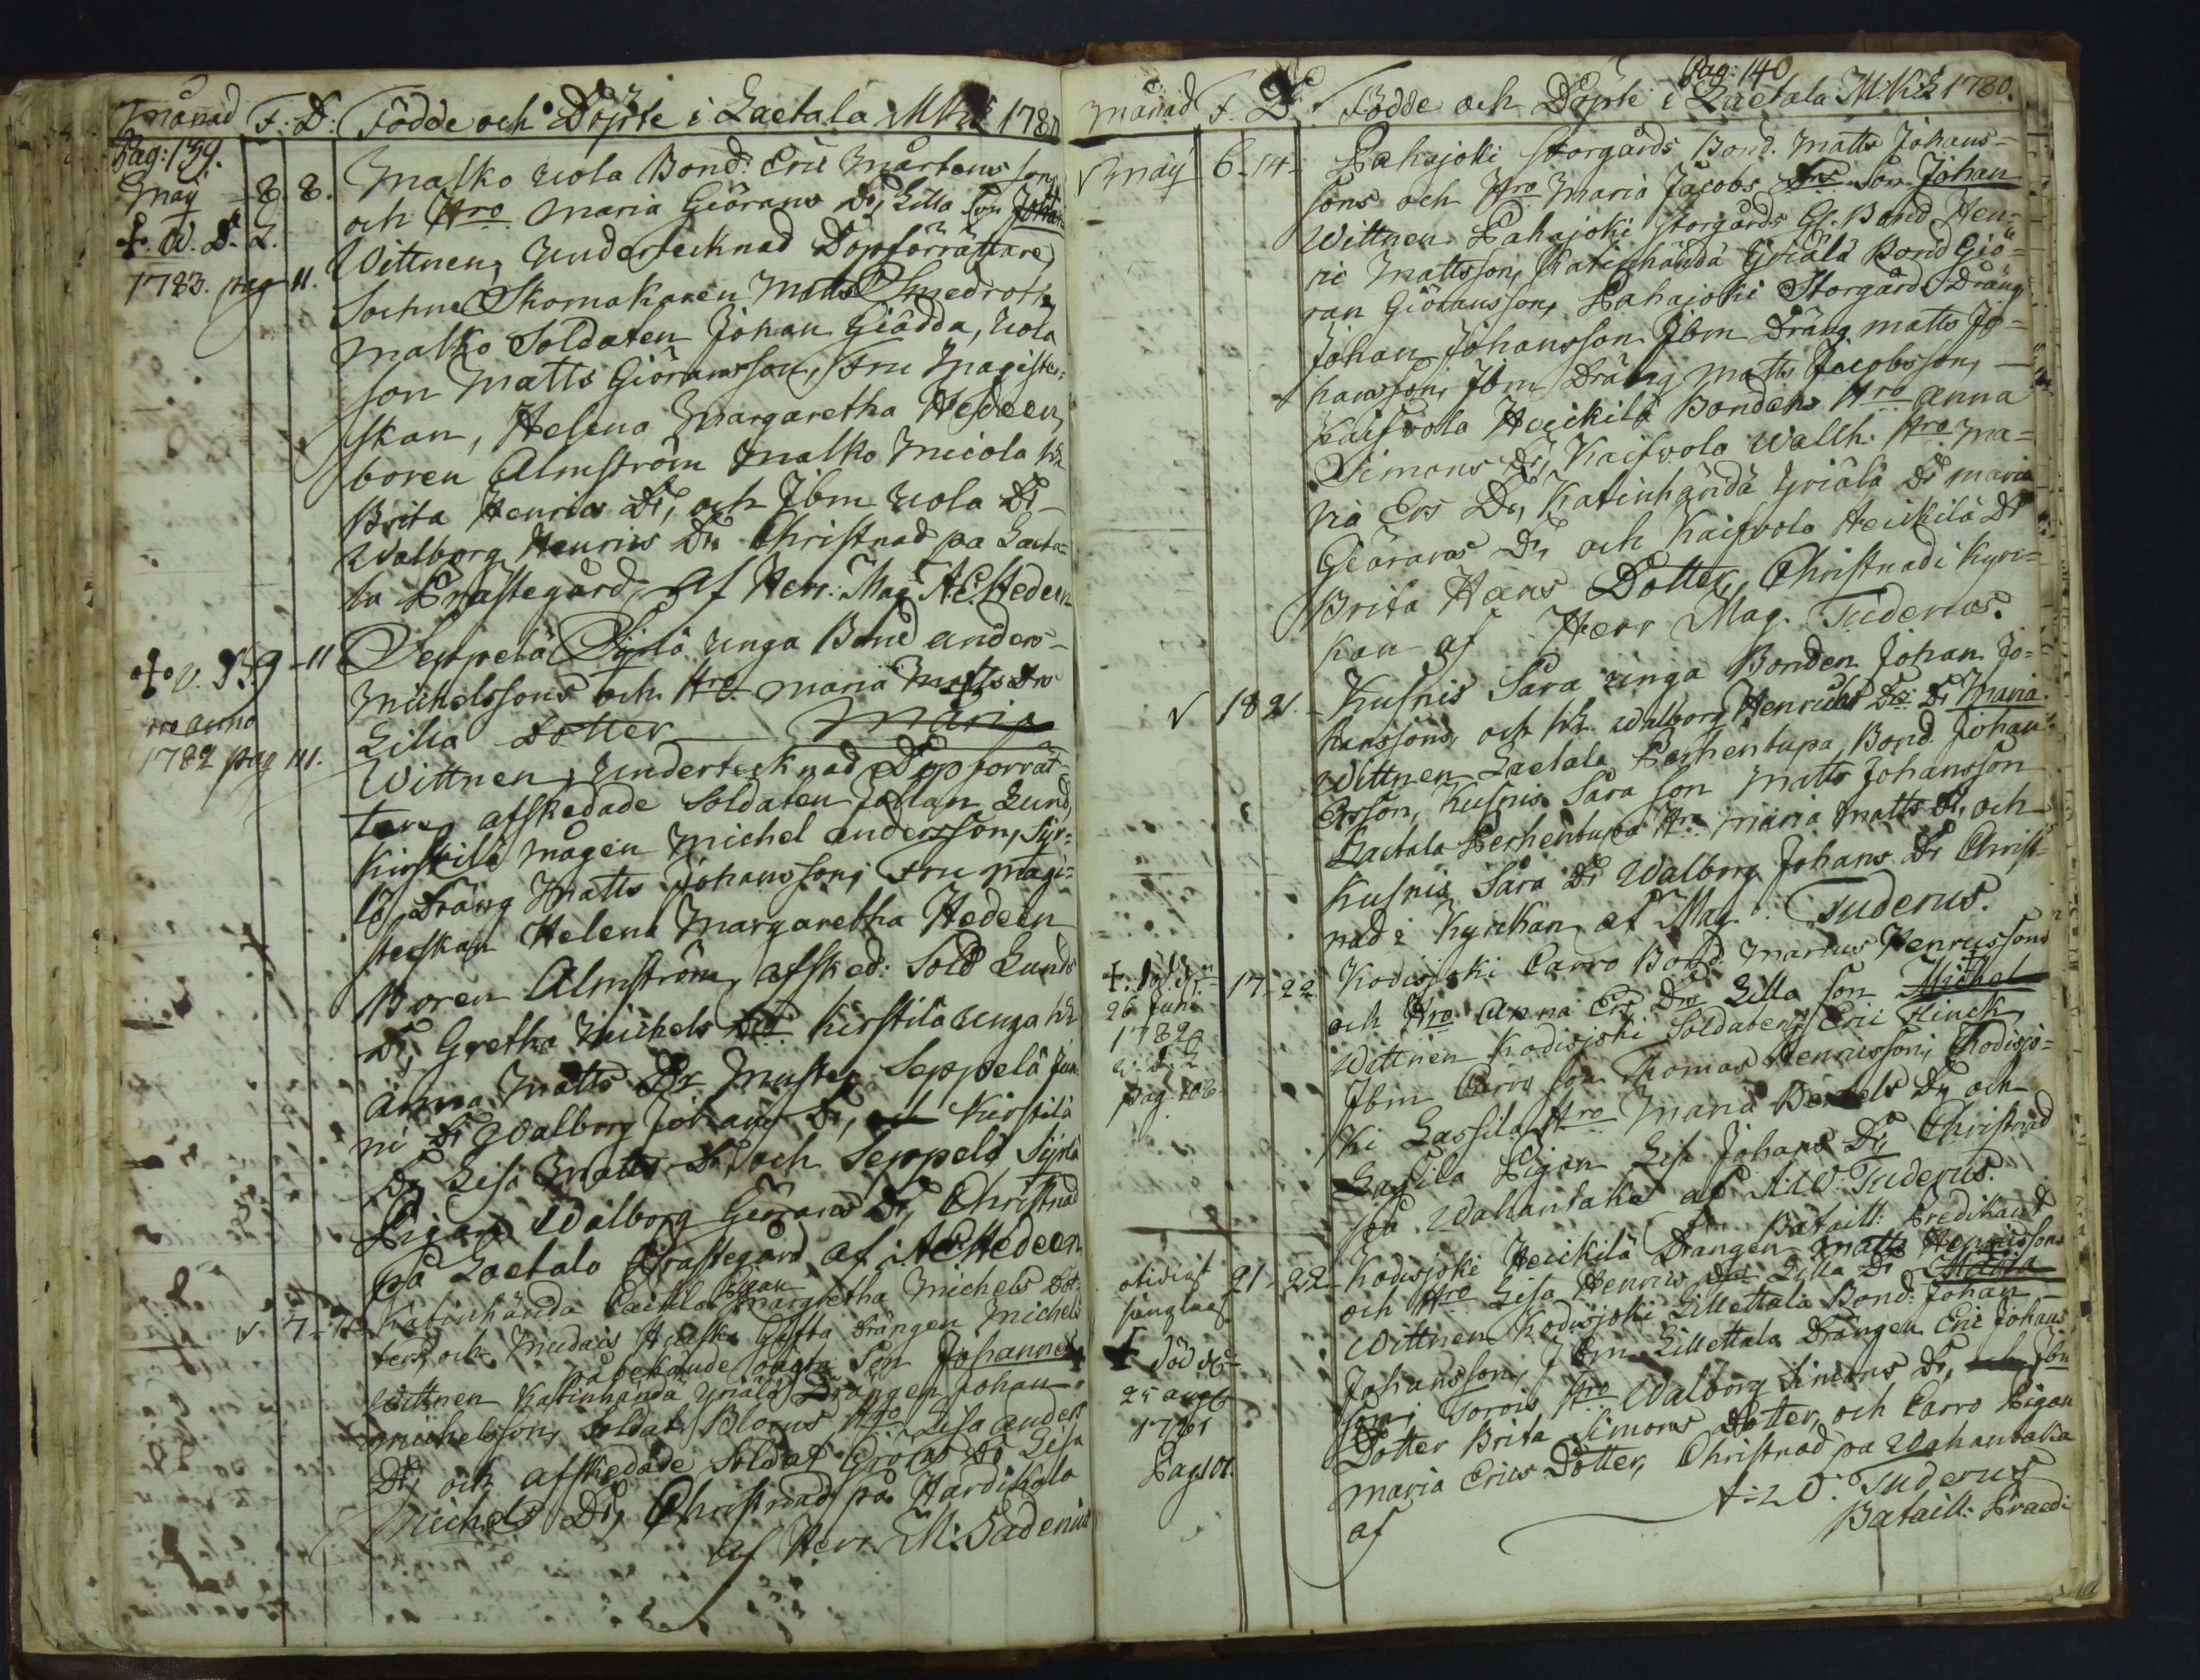 Månad F. D. Födde och Döpte i Laetala M K S 1780
Pag: 139.
May 8. 8. Malko uola Bond: Eric Mårtens son,
och Hro Maria Giörans Dr, Lilla son Johan
✝. V. D. L.
Wittnen, Undertecknad Dopförrättare,
1783. pag 11.
Sockne Skomakaren Matts Smedroth,
Malko Soldaten Johan Giädda, uola
son Matts Giöransson, Fru Magister-
skan, Helena Margaretha Hedeen,
boren Almström Malko Micola hu
Brita Henrics Dr, och Jbm uola Dr
Walborg Henrics Dr. Christnad på Laeta-
la Prästegård, af Herr: Mag: A: Hedeen
✝. V. D. 9 - 11 Seppelä Syrlä unga Bond anders
Michelssons och Hro Maria Matts Drs
anno
1782 pag 111.
Lilla Dotter Maria
Wittnen, Undertecknad Dopförrät-
tare, afskedade Soldaten Johan Lund,
Kirstilä mågen Michel andersson, Syr-
lä Dräng Matts Johansson, Fru Magi-
sterskan Helena Margaretha Hedeen
Boren Almström, afsked: Sold Lunds
Dr, Gretha Michels Dr Kirstilä unga hu
anna Matts Dr Muster Seppelä Jun-
ni Dr Walborg Johans Dr, och Kirstilä
Dr Lisa Matts Dr, och Seppelä Syrlä
Pigan Walborg Görans Dr, Christnad
på Laetala Prästegård af: A: Hedeen
√ 7 - 11 Katinhända Pigan Margretha Michels Dot-
ters, och Mudais Gifta Drängen Michels
påbekände oägta Son Johannes
Wittnen Katinhända Yriälä Drängen Johan
Michelsson, Soldat Hro Lisa anders
Dr, och afskedade Soldat Dr Lisa
Michels Dr, Christnad på Hardikala
af Herr. M: Gadenius
Pag: 140
Månad F. D. Födde och Döpte i Laetala M K S 1780.
√ May 6 - 14 - Pahajoki Storgårds Bond. Matts Johans-
sons och Hro Maria Jacobs Drs Son Johan
Wittnen. Pahajoki Storgårds Gl. Bond Hen-
ric Mattsson, Katinhändä Yriälä Bond Giö-
ran Giöransson, Pahajoki Storgårds Dräng
Johan Johansson Jbm Dräng Matts Jo-
hansson, Jbm Dräng Matts Jacobsson,
Kaifvola Heickilä Bondens Hro Anna
Simons Dr, Kaifvola Wallh: Hro Ma-
ria Ers Dr, Katinhändä Yriälä Dr Maria
Giörans Dr, och Kaifvola Heickilä Dr
Brita Hans Dotter, Christnad i Kyrc-
kan af Herr Mag. Tuderus.
√ 18 21. - Kusnis Sara unga Bonden Johan Jo-
hanssons, och hu Walborg Henrichs Drs Dr Maria.
Wittnen Laetala Perhentupa Bond. Johan
Ersson, Kusnis Sara son Matts Johansson
Laetala Perhentupa Hro Maria Matts Dr, och
Kusnis Sara Dr Walborg Johans Dr Christ-
nad i Kyrckan af Mag. Tuderus.
✝. 17 - 22 Kodisjoki Carro Bond. Marcus Henricssons
26 Juni
1782
V. D. L.
pag. 106
och Hro Anna Ers Drs Lilla son Michel
Wittnen Kodisjoki Soldaten Eric Flinck,
Jbm Carro son Thomas Henricsson, Kodisjo-
ki Lassila Hro Maria Bertels Dr, och
Lassila Pigan Lisa Johans Dr, Christnad
på Wahantaka af A: W: Tuderus.
Bataill: Predikant
21 - 22 Kodisjoki Heickilä Drängen Matts Henricssons
och Hro Lisa Henrics Drs Lilla Dr Maria
✝ död
25 aug
1781
Pag 101.
Wittnen Kodisjoki Lillettala Bond: Johan
Johansson, Jbm Lillettala Drängen Eric Johans
son, Sorois Hro Walborg Simons Dr, och Jbm
Dotter Brita Simons Dotter, och Carro Pigan
Maria Erics Dotter, Christnad på Wahantaka
af A: W: Tuderus
Bataill: Praedi